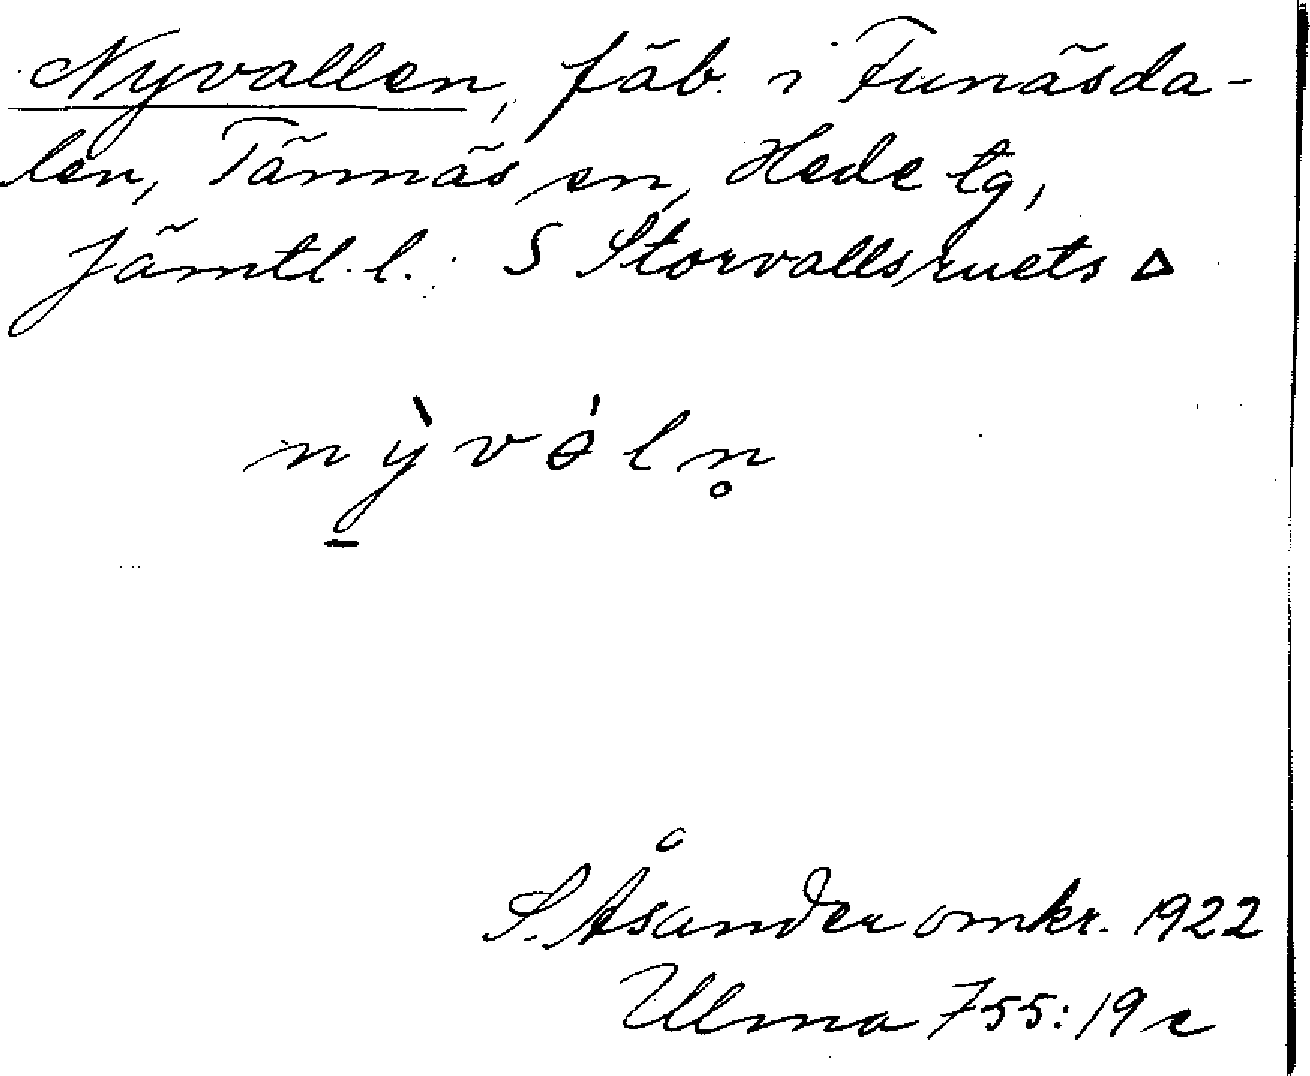 Nyvallen, fäb. i Funäsda-
len, Tännäs sn, Hede tg,
Jämtl. l. S Storvallsruets Δ
nỳ̱və́ln̥
S. Åsander omkr. 1922
Ulma 755:19 c